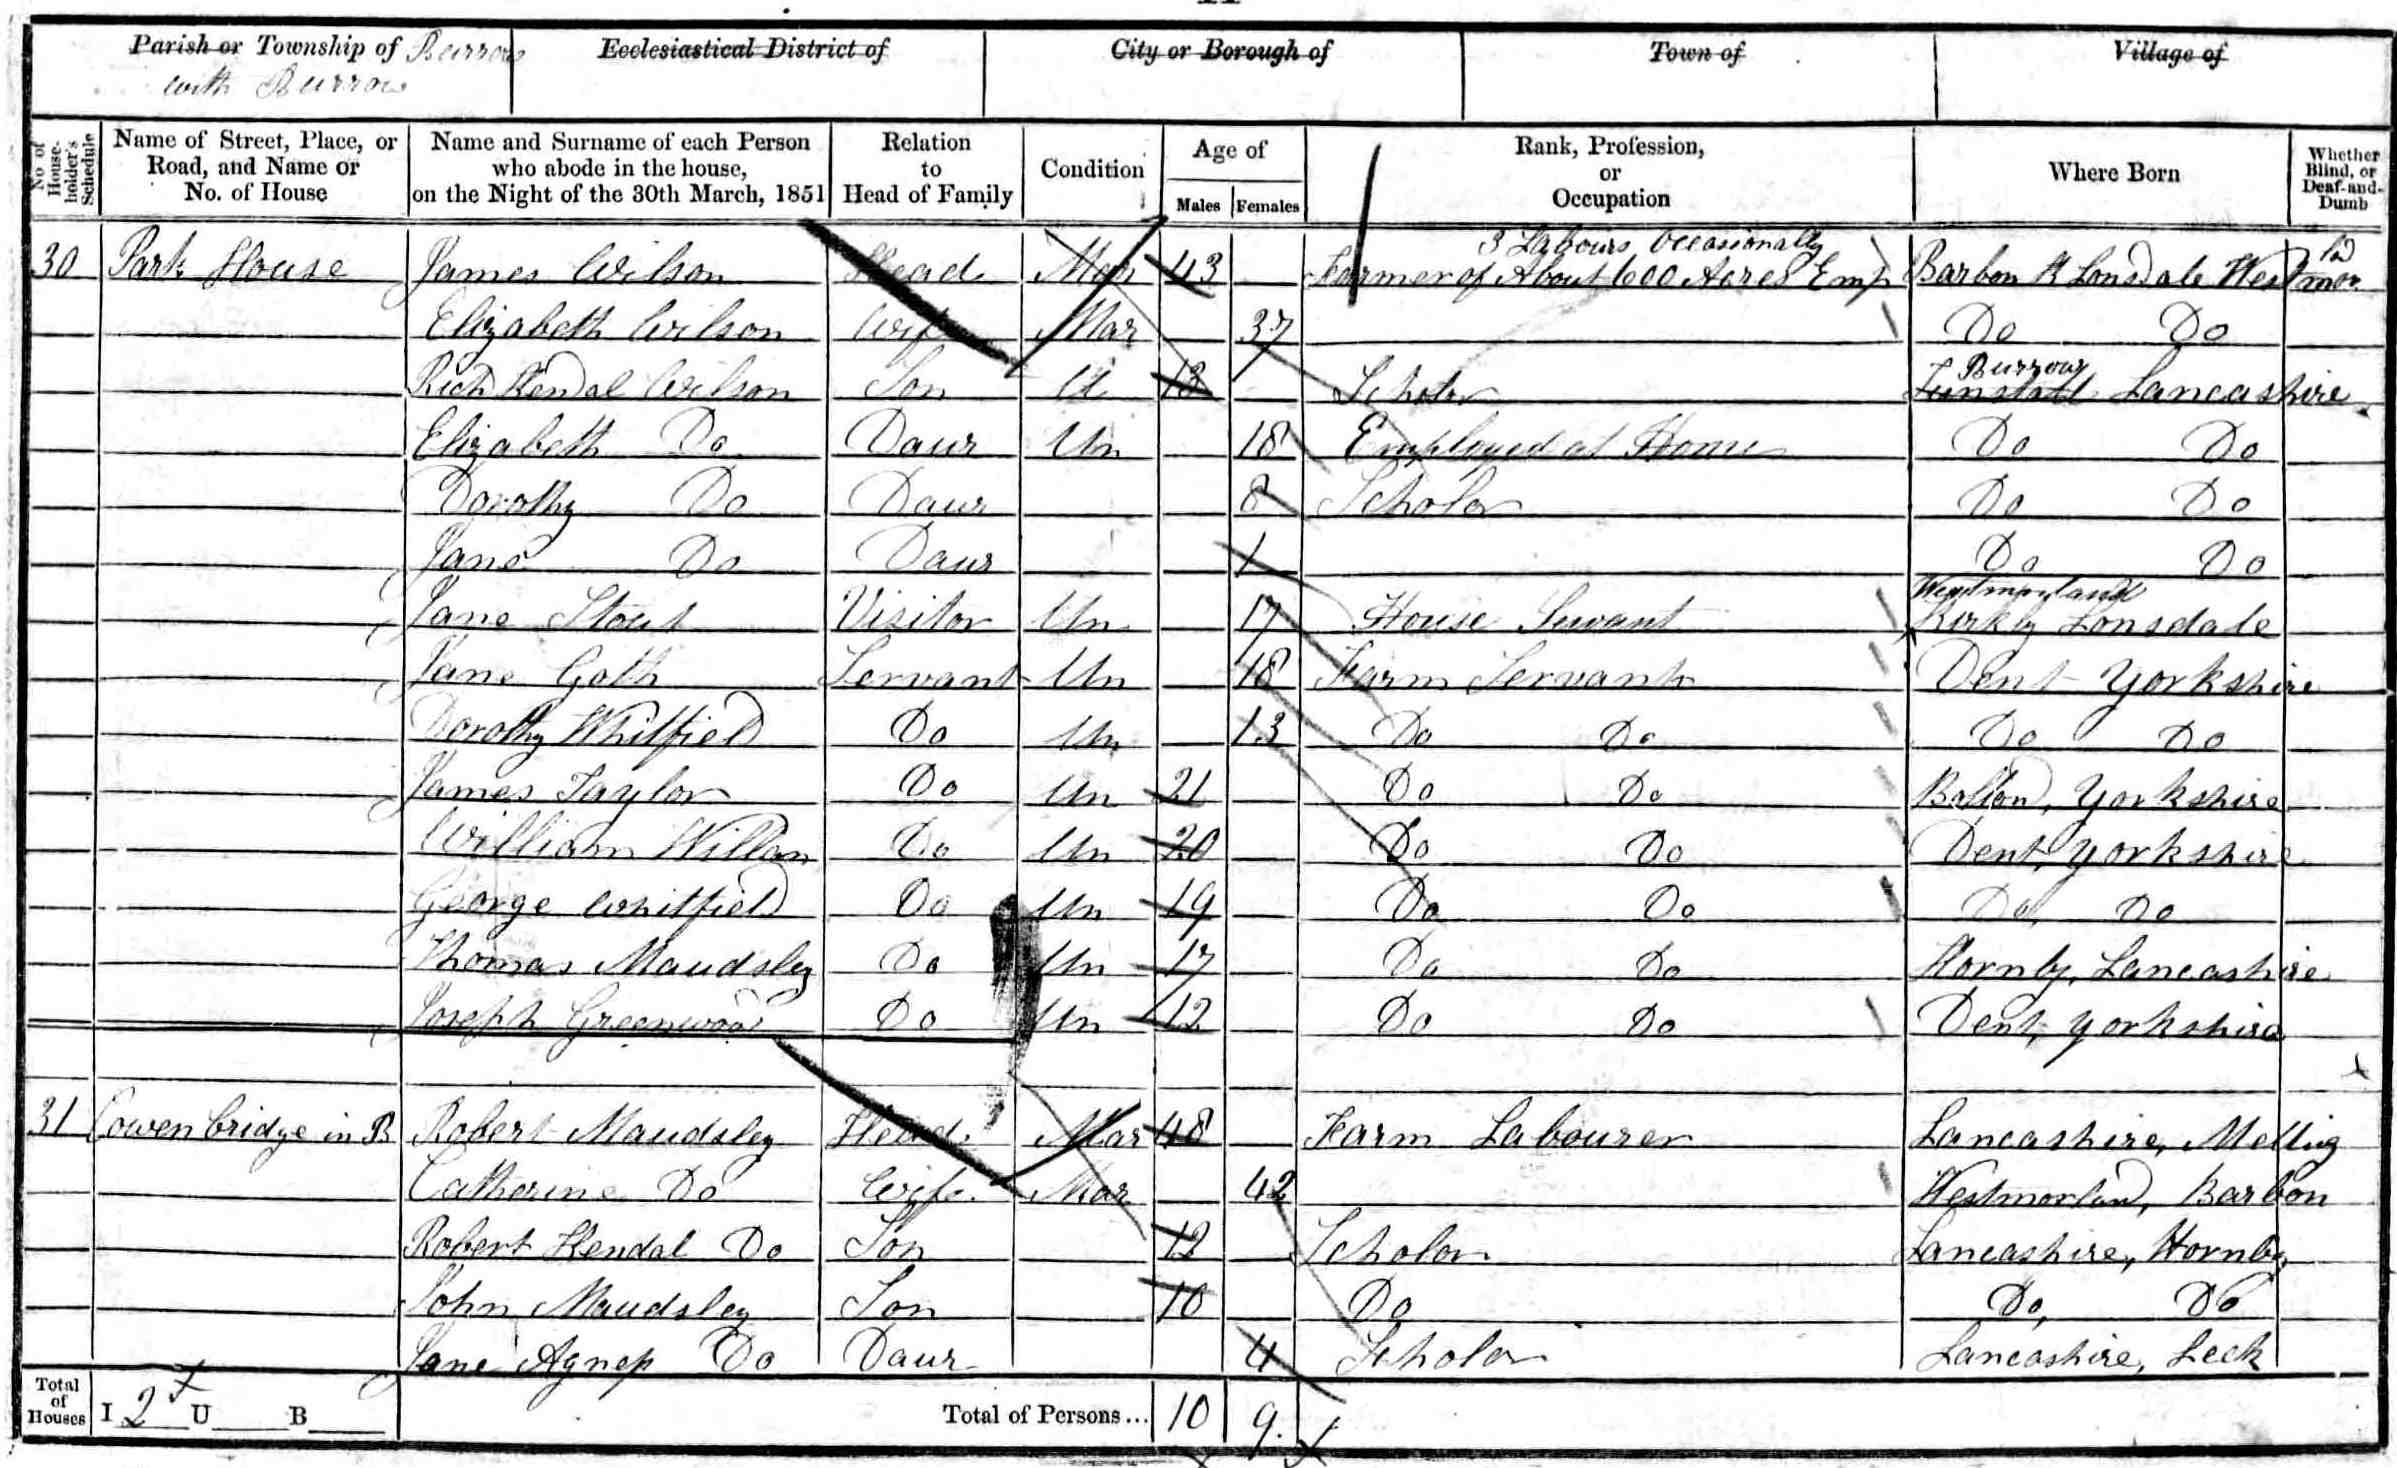 Parish or Township of Burrow
with Burrow
Ecclesiastical District of
City or Borough of
Town of
Village of
No of House-holder's Schedule
Name of Street, Place, or Road, and Name or No. of House
Name and Surname of each Person who abode in the house, on the Night of the 30th March, 1851
Relation to Head of Family
Condition
Age of
Males
Females
Rank, Profession, or Occupation
Where Born
Whether Blind, or Deaf-and-Dumb
3 Labours Occasionally
30 Park House James Wilson Head Mar 43 Farmer of About 600 Acres Emp Barbon K Lonsdale Westmor
Elizabeth Wilson Wife Mar 37 Do Do
Burrow
Richd Kendal Wilson Son U 13 Scholar Tunstall Lancashire
Elizabeth Do Daur Un 18 Employed at Home Do Do
Dorothy Do Daur 8 Scholar Do Do
Jane Do Daur 1 Do Do
Westmorland
Jane Stout Visitor Un 17 House Servant Kirkby Lonsdale
Jane Goth Servant Un 18 Farm Servant Dent Yorkshire
Dorothy Whitfield Do Un 13 Do Do Do Do
James Taylor Do Un 21 Do Do Yorkshire
William Willan Do Un 20 Do Do Dent, Yorkshire
George Whitfield Do Un 19 Do Do Do, Do
Thomas Maudsley Do Un 17 Do Do Hornby, Lancashire
Joseph Greenwood Do Un 12 Do Do Dent, Yorkshire
31 Cowen bridge in B Robert Maudsley Head Mar 48 Farm Labourer Lancashire, Melling
Catherine Do Wife Mar 42 Westmorland, Barbon
Robert Kendal Do Son 12 Scholar Lancashire, Hornby
John Maudsley Son 10 Do Do, Do
Jane Agness Do Daur 4 Scholar Lancashire, Leck
Total of Houses I 2 U B Total of Persons... 10 9